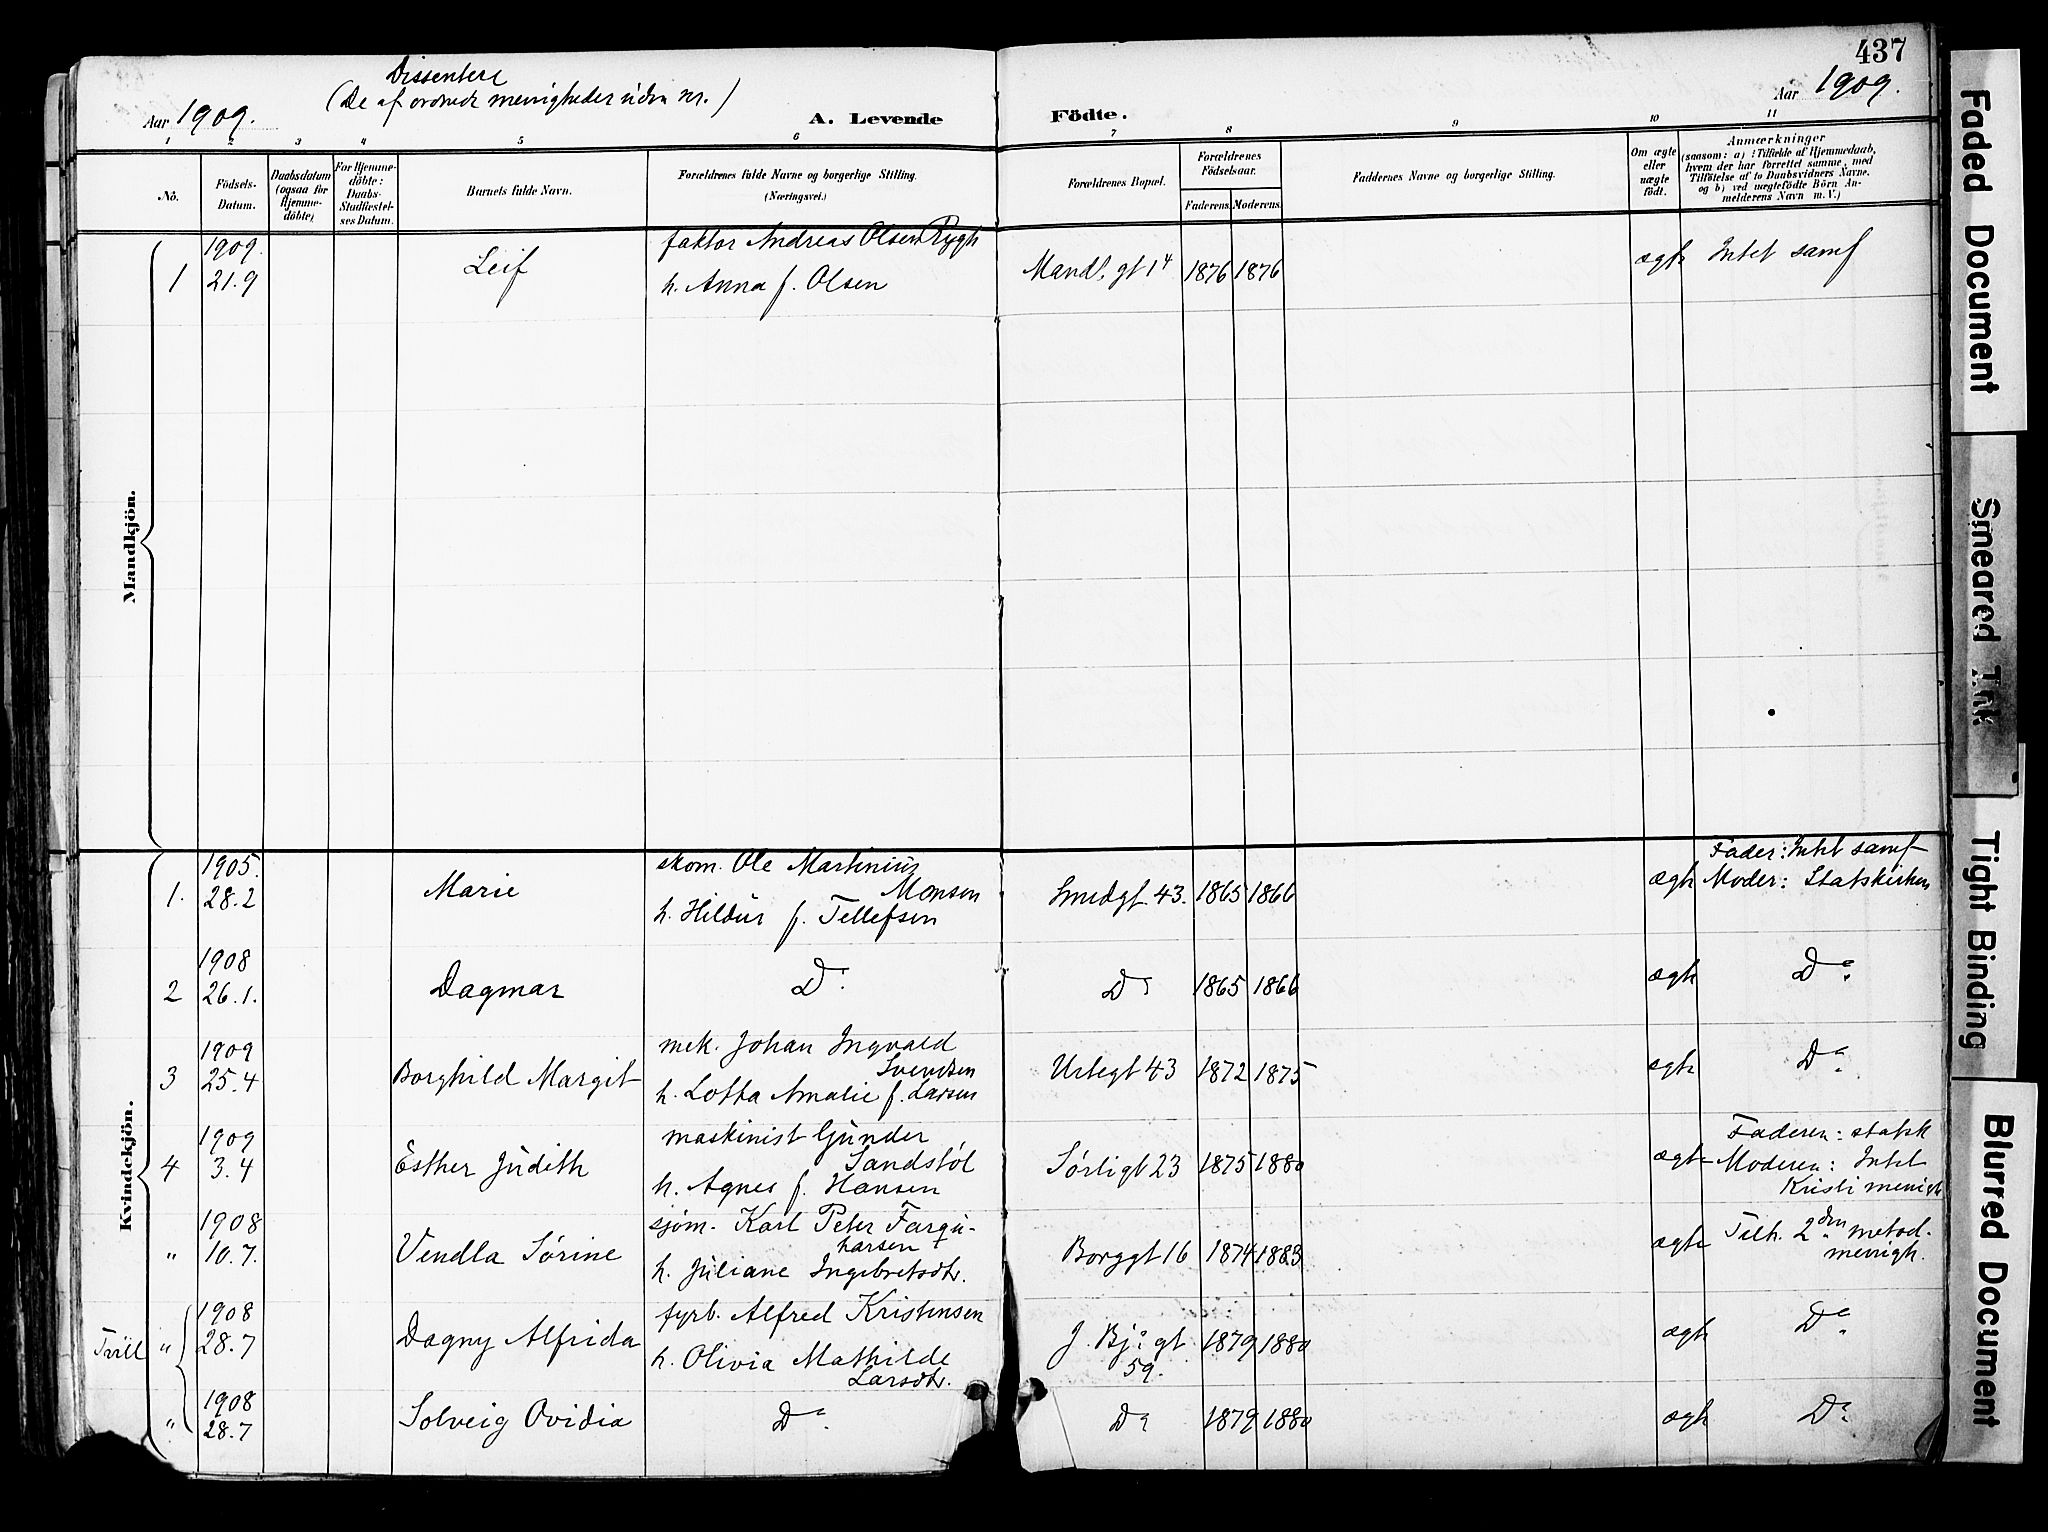 437
Dissentere
(De af ordnede menigheder uden nr.)
Aar 1909.
A. Levende Födte.
Aar 1909.
1 2 3 4 5 6 7 8 9 10 11
No.
Födsels-
Datum.
Daabsdatum
(ogsaa for
Hjemme-
döbte).
For Hjemme-
döbte:
Daabs-
Stadfæstel-
ses Datum.
Barnets fulde Navn.
Forældrenes fulde Navne og borgerlige Stilling.
(Næringsvei.)
Forældrenes Bopæl.
Forældrenes
Födselsaar.
Faderens. Moderens.
Faddernes Navne og borgerlige Stilling.
Om ægte
eller
uægte
födt.
Anmærkninger
(saasom: a) i Tilfælde af Hjemmedaab,
hvem der har forrettet samme, med
Tilföielse af to Daabsvidners Navne.
og b) ved uægtefödte Börn An-
melderens Navn m. V.)
Mandkjön.
1909.
1 21.9 Leif
faktor Andreas Olsen Rygh
h. Anna f. Olsen
Mandl. gt 14 1876 1876 ægte Intet samf
Kvindekjön.
1905.
1. 28.2 Marie
skom. Ole Martinius
Monsen
h. Hildur f. Tellefsen
Smedgt 43. 1865 1866 ægte
Fader: Intet samf
Moder: Statskirken
1908
2 26.1. Dagmar Do. Do 1865 1866 ægte Do.
1909
3 25.4 Borghild Margit
mek. Johan Ingvald
Svendsen
h. Lotta Amalie f. Larsen
Urtegt 43 1872 1875 ægte Do.
1909
4 3.4 Esther Judith
maskinist Gunder
Sandstöl
h. Agnes f. Hansen
Sørligt 23 1875 1880 ægte
Faderen: statsk
Moderen: Intet
Kristi menigh
1908
" 10.7. Vendla Sørine
sjøm. Karl Peter Farqu-
harsen
h. Juliane Ingebretsdtr.
Borggt 16 1874 1883 ægte
Tilh. 2den metod.
menigh.
Tvill
1908
" 28.7 Dagny Alfrida
fyrb. Alfred Kristensen
h. Olivia Mathilde
Larsdtr.
J. Bj. gt
59. 1879 1880 ægte Do.
1908
" 28.7 Solveig Ovidia Do Do 1879 1880 ægte Do.
Faded Document
Smeared Ink
Tight Binding
Blurred Document